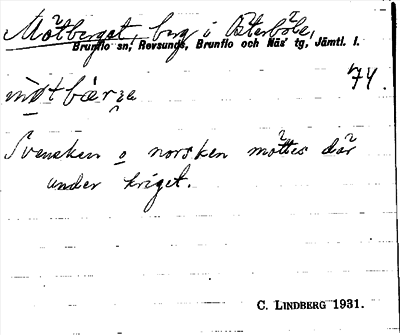 Mötberget, berg i Österböle,
Brunflo sn, Revsunds, Brunflo och Näs' tg, Jämtl. l.
74.
mö̀tbærʒe
Svensken o norsken möttes där
under kriget.
C. LINDBERG 1931.